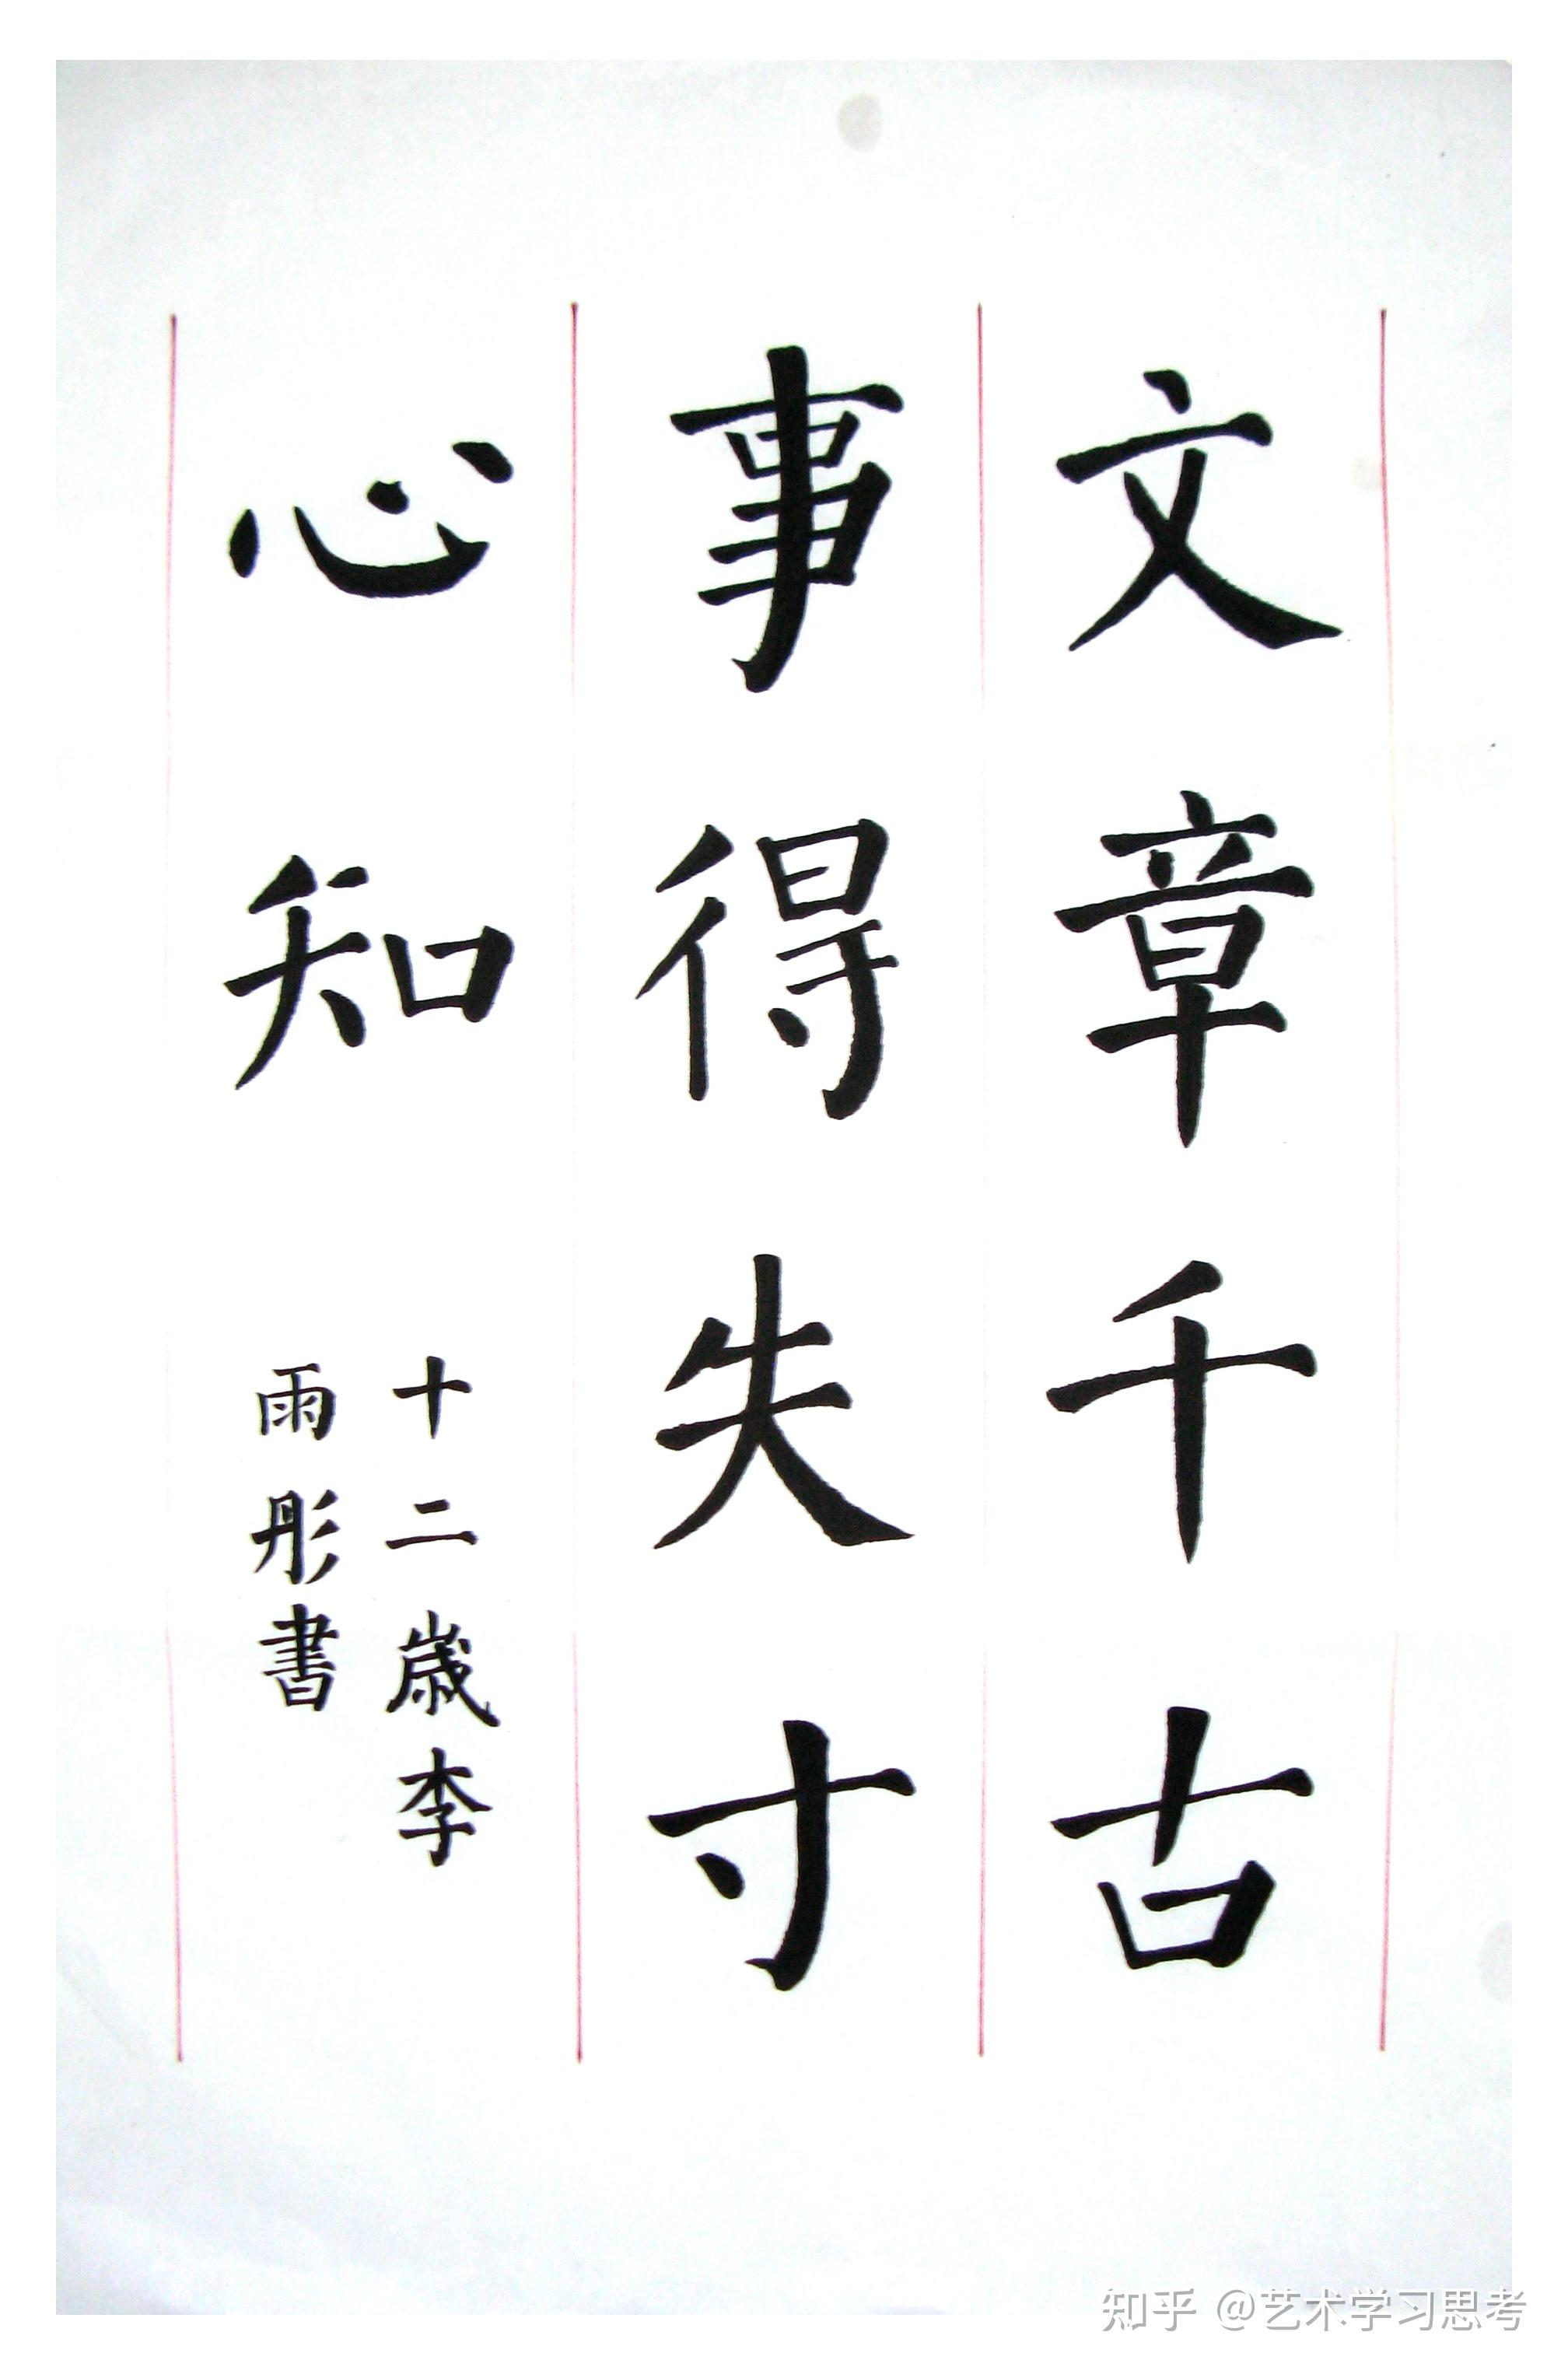 文章千古
事得失寸
心知
十二歲李
雨彤書
知乎 @艺术学习思考